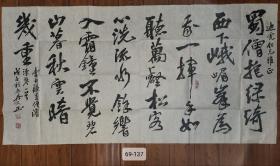 蜀僧抱綠綺
西下峨嵋峯為
我一揮手如
聽萬壑松客
心洗流水餘響
入霜鐘不覺碧
山暮秋雲暗
幾重
69-137